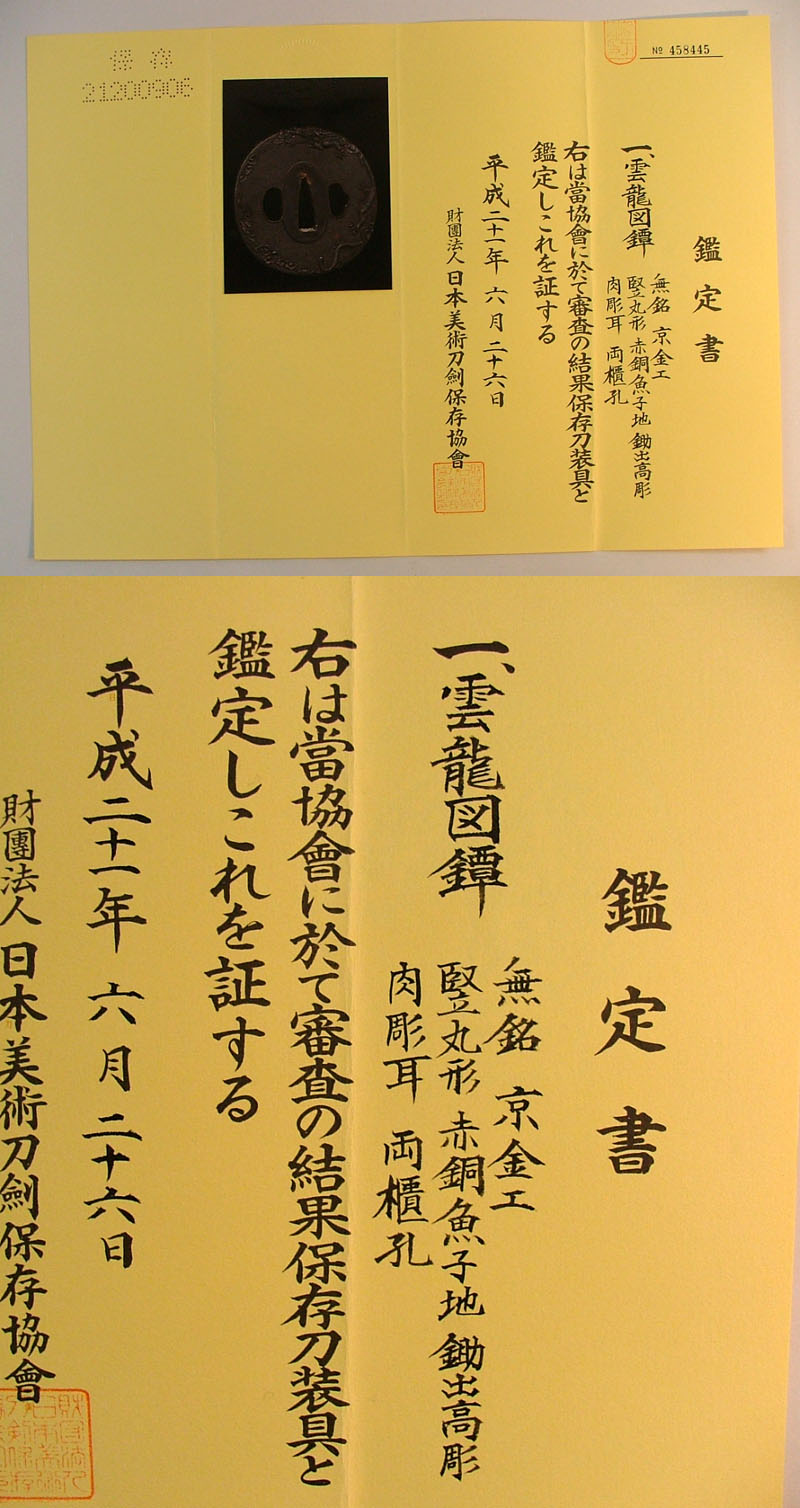 保存
21200906
№ 458445
鑑定書
一、雲龍図鐔
無銘 京金工
竪丸形 赤銅魚子地 鋤出高彫
肉彫耳 両櫃孔
右は當協會に於て審査の結果保存刀装具と
鑑定しこれを証する
平成二十一年 六月 二十六日
財團法人 日本美術刀劍保存協會
鑑定書
一、雲龍図鐔
無銘 京金工
竪丸形 赤銅魚子地 鋤出高彫
肉彫耳 両櫃孔
右は當協會に於て審査の結果保存刀装具と
鑑定しこれを証する
平成二十一年 六月 二十六日
財團法人 日本美術刀劍保存協會